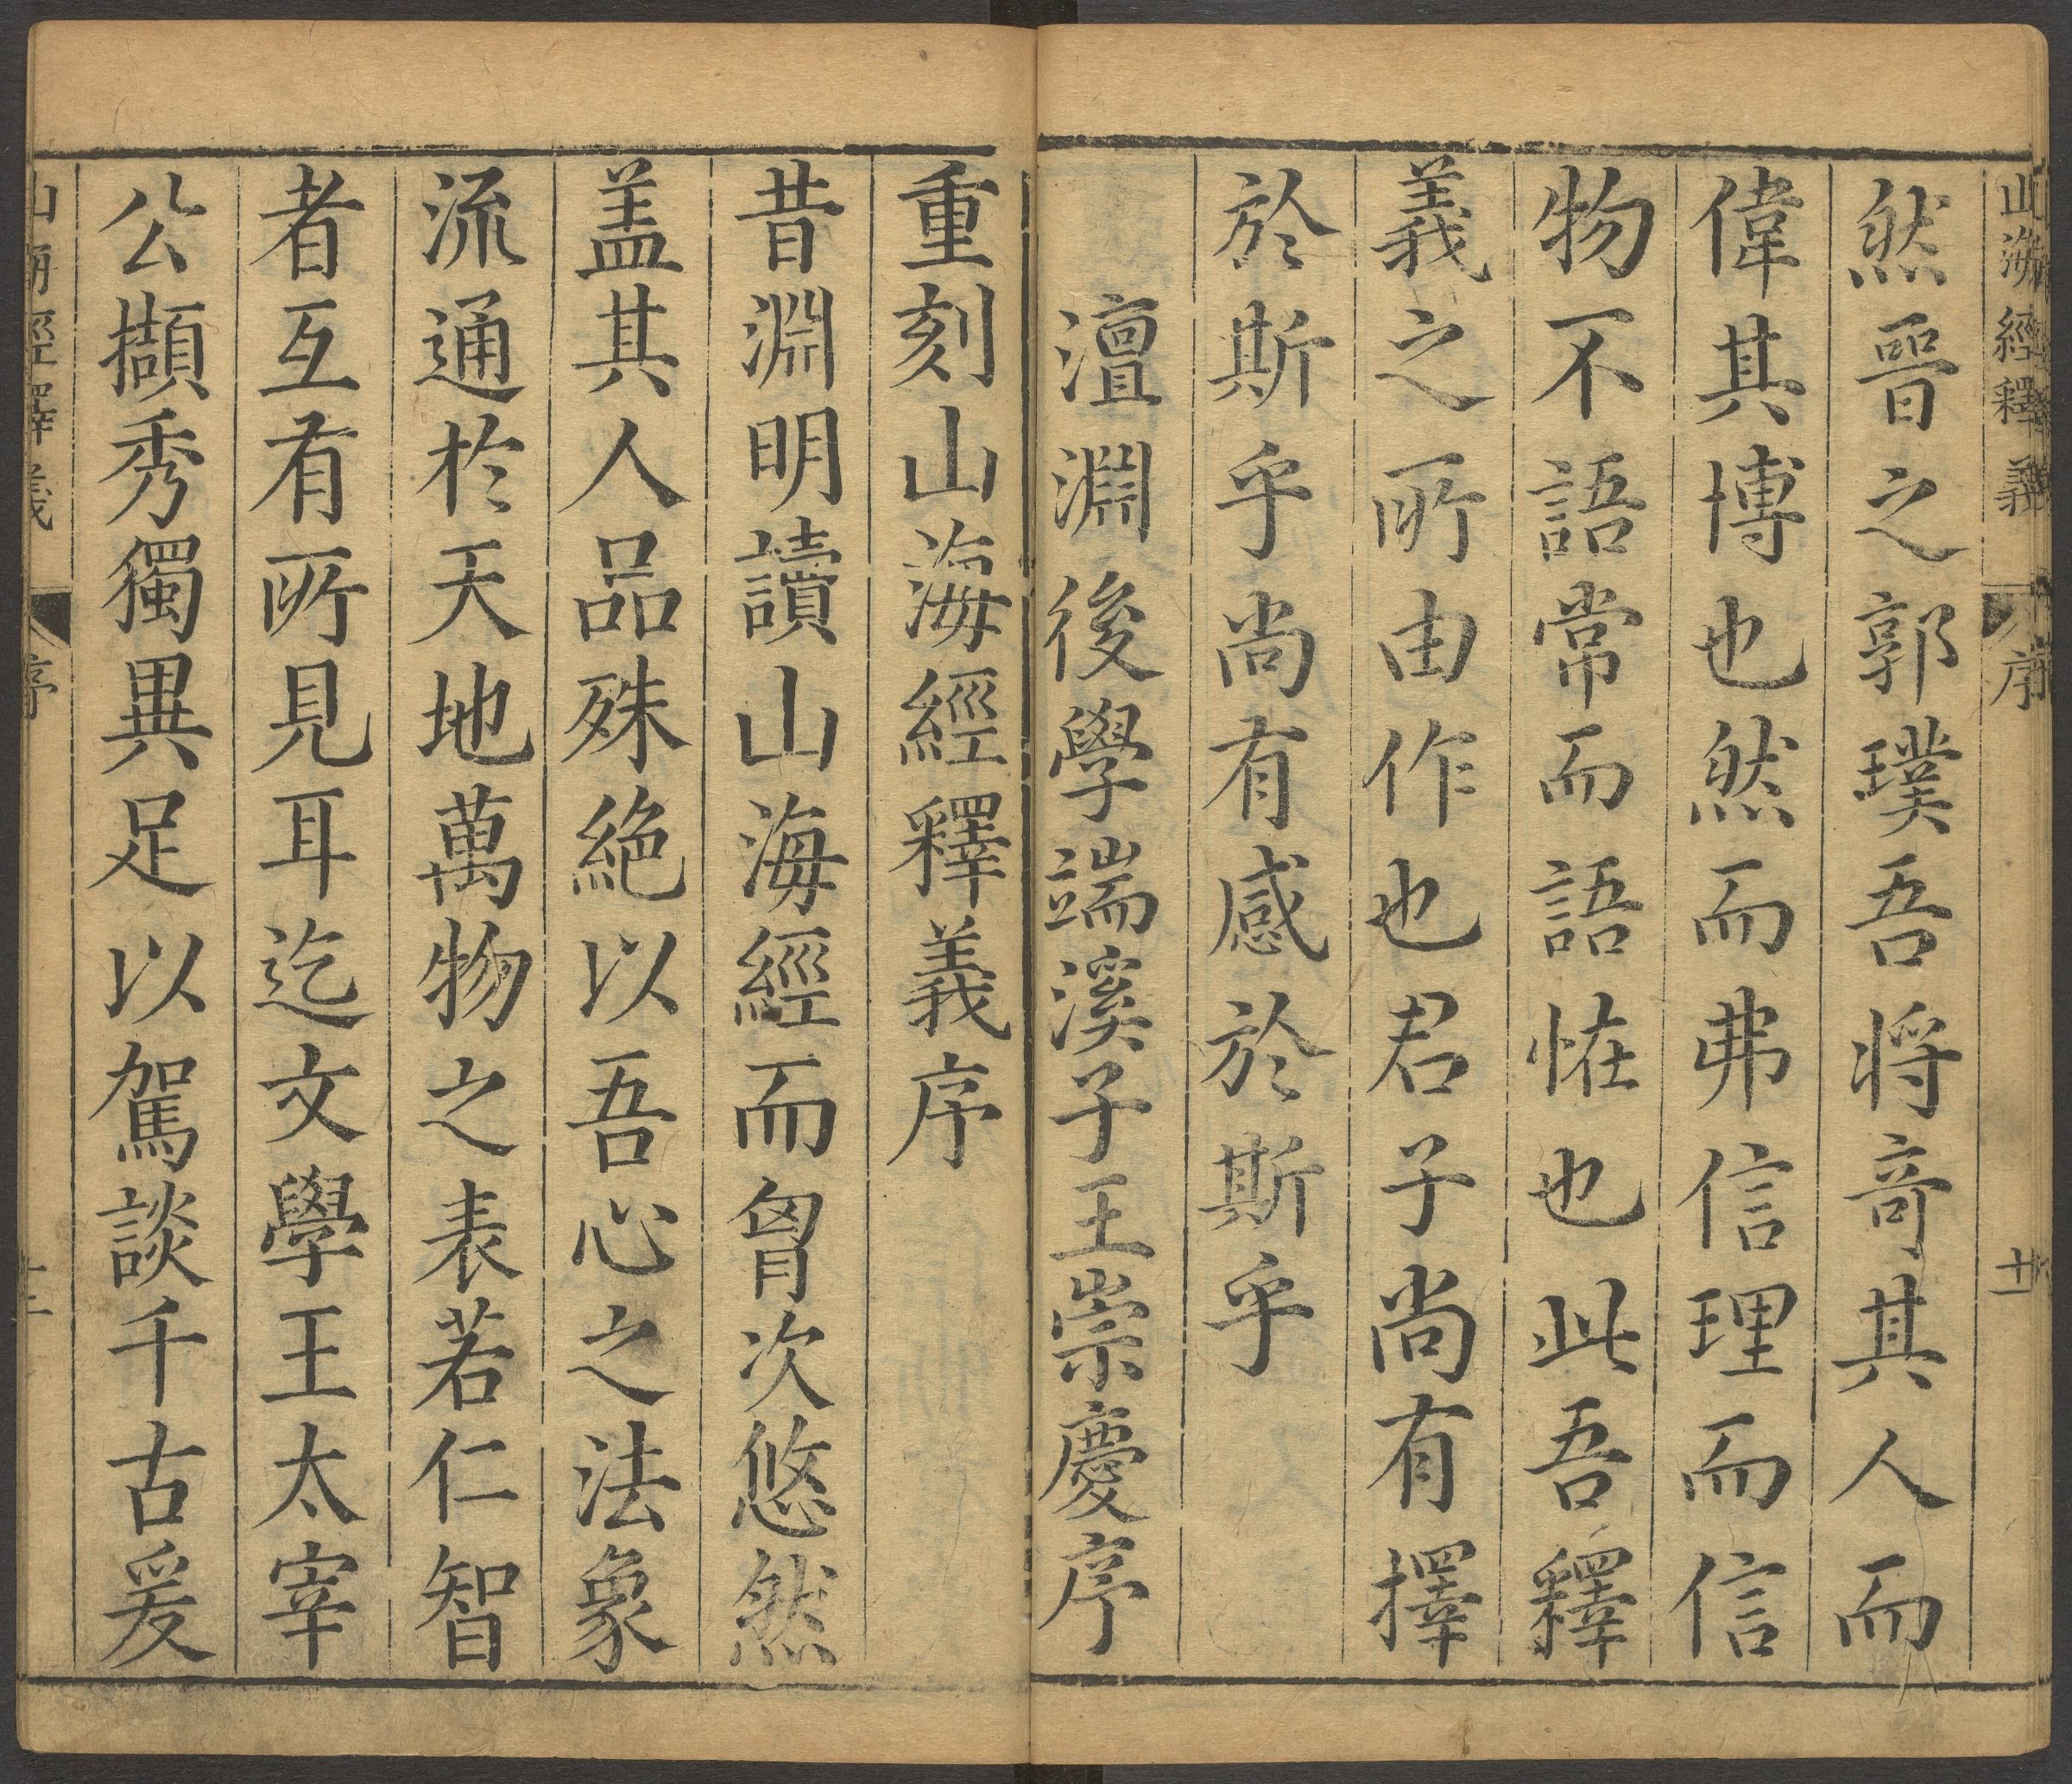 山海經釋義 序 十一
然晉之郭璞吾将竒其人而
偉其博也然而弗信理而信
物不語常而語恠也此吾釋
義之所由作也君子尚有擇
於斯乎尚有感於斯乎
澶淵後學端溪子王崇慶序
重刻山海經釋義序
昔淵明讀山海經而胷次悠然
盖其人品殊絶以吾心之法象
流通於天地萬物之表若仁智
者互有所見耳迄文學王太宰
公擷秀獨異足以駕談千古爰
山海經釋義 序